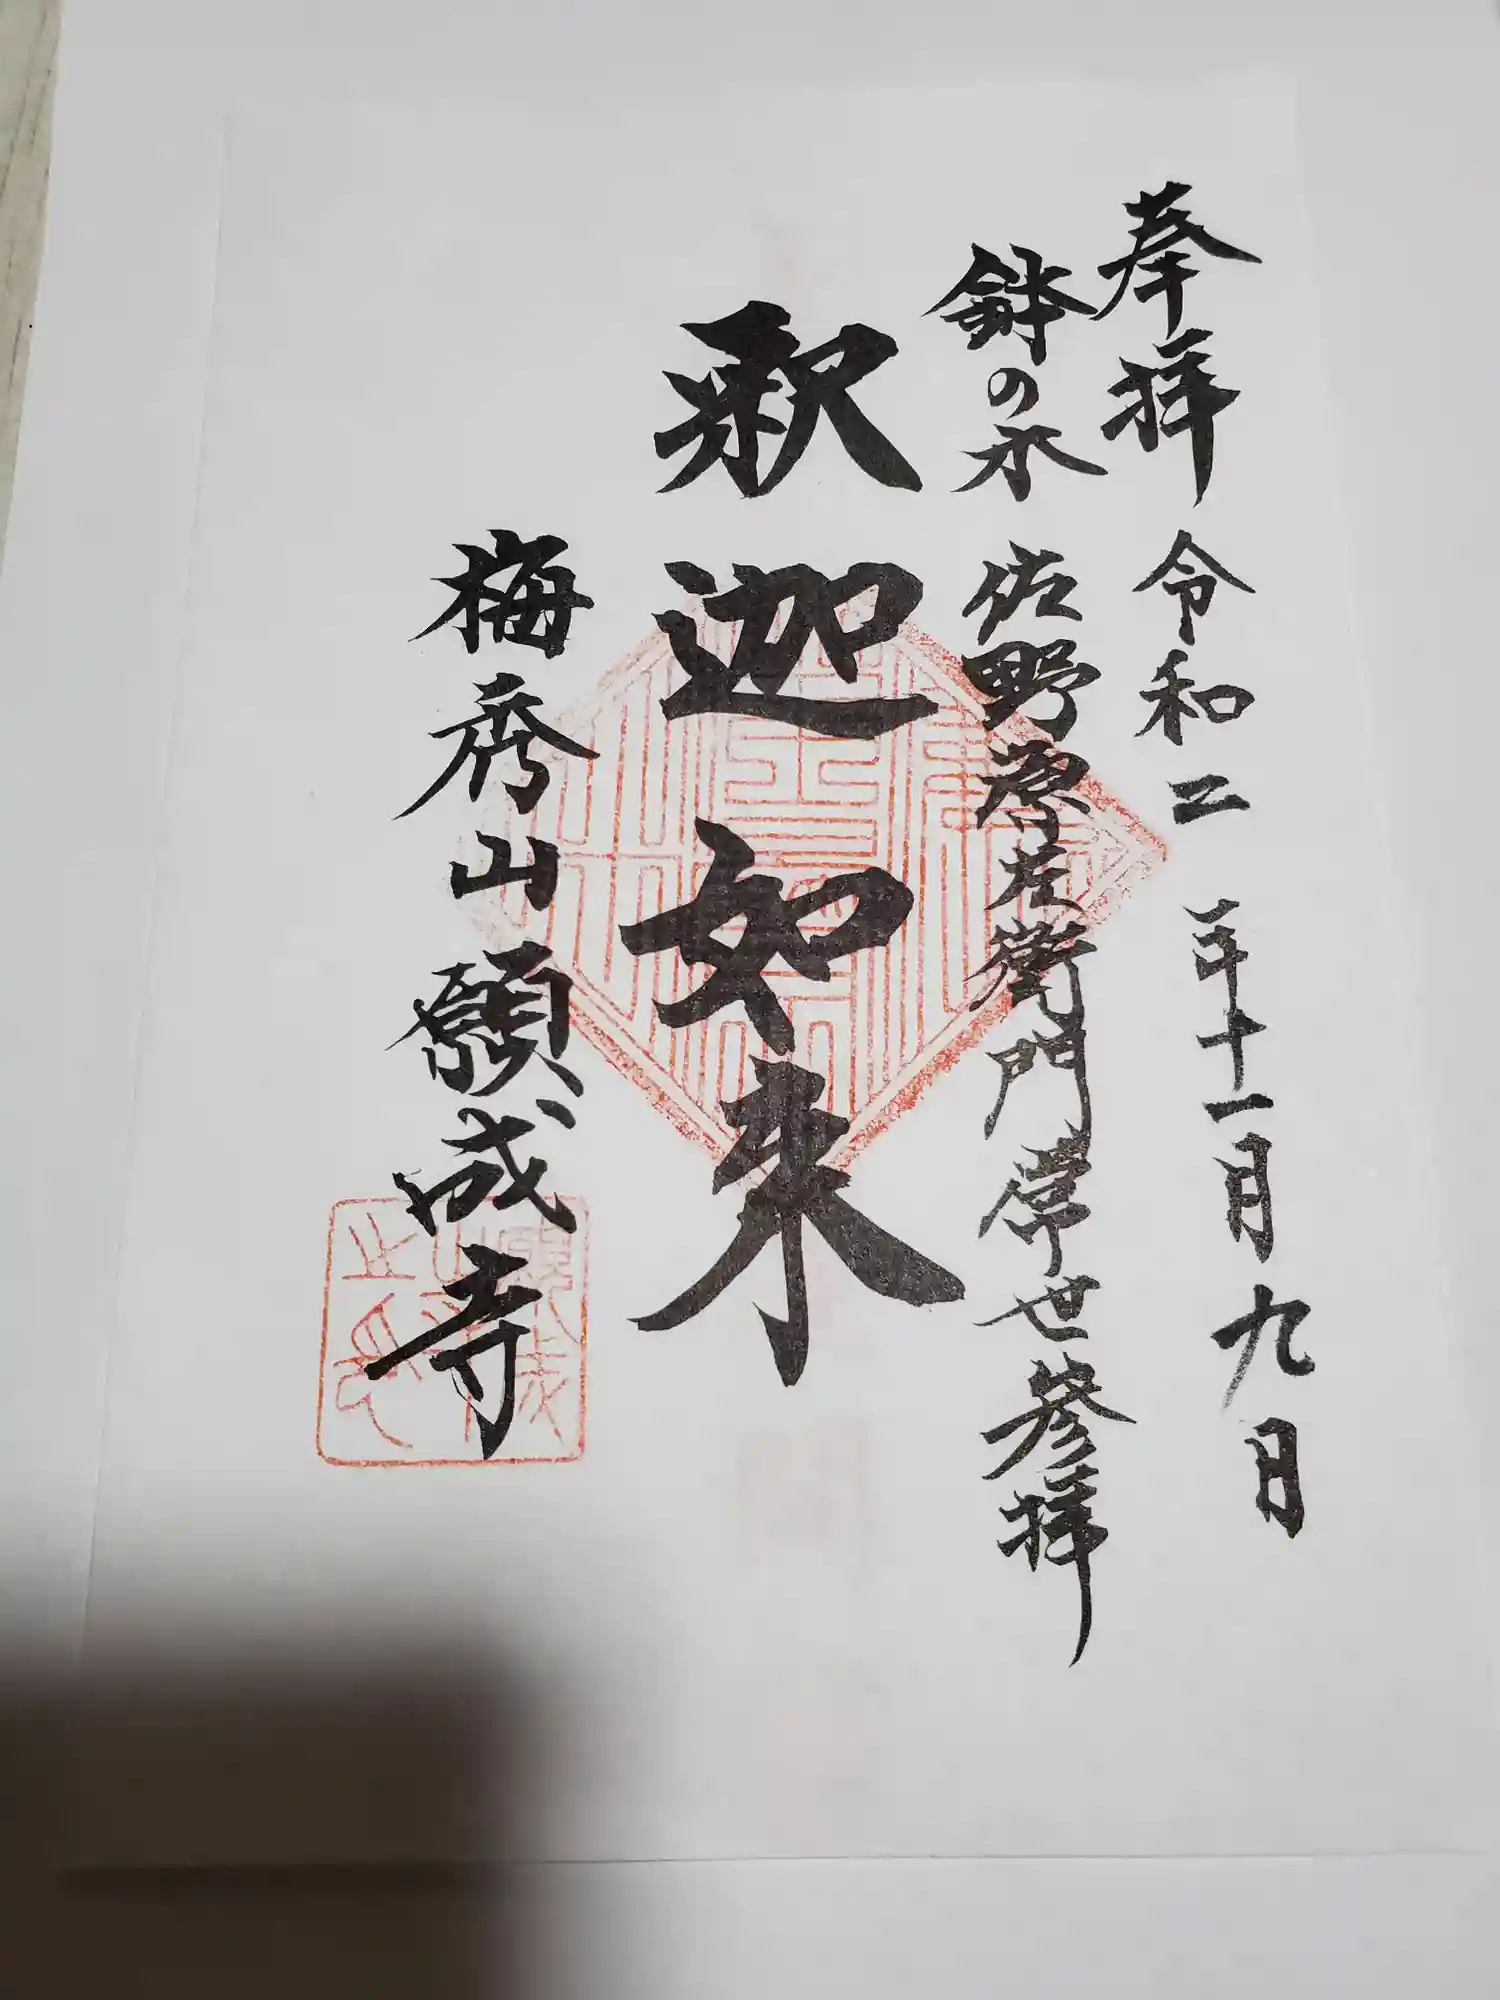 奉拝 令和二年十一月九日
鉢の木 佐野源左衛門常世参拝
釈迦如来
梅秀山 願成寺